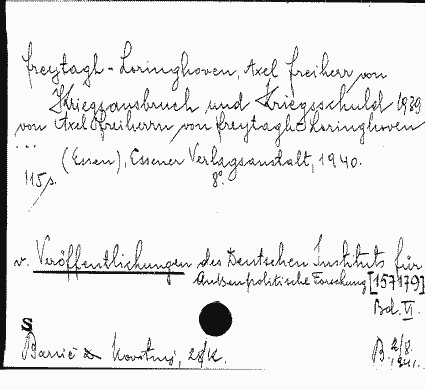 Freytagh-Loringhoven, Axel Freiherr von
Kriegsausbruch und Kriegsschuld 1939
von Axel Freiherrn von Freytagh-Loringhoven
...
(Essen), Essener Verlagsanstalt, 1940.
115 s. 8°.
v. Veröffentlichungen des Deutschen Instituts für
Außenpolitische Forschung [157179]
Bd. VI.
S
B. 2/8.
1941.